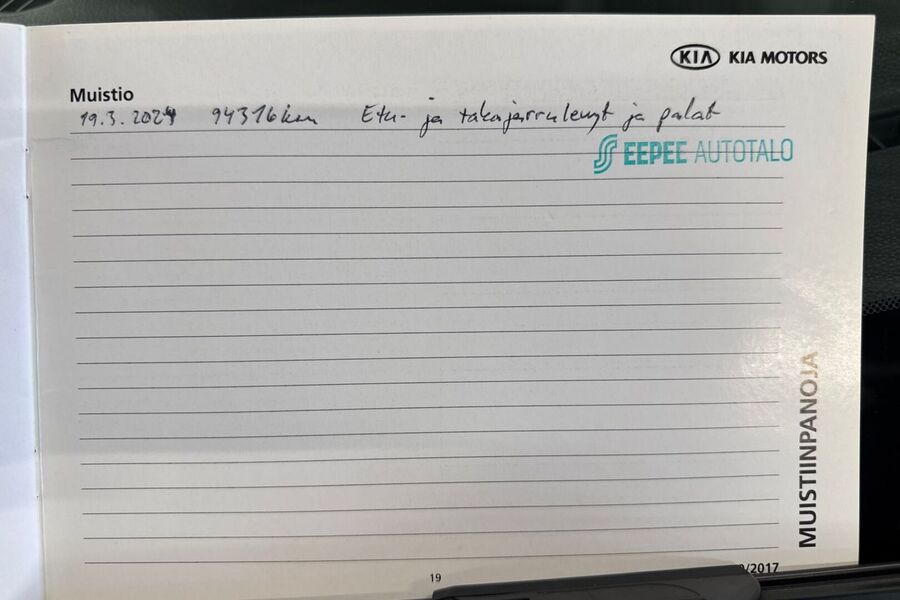 KIA KIA MOTORS
Muistio
19.3.2024 94316km Etu- ja takajarrulevyt ja palat
EEPEE AUTOTALO
MUISTIINPANOJA
19
/2017